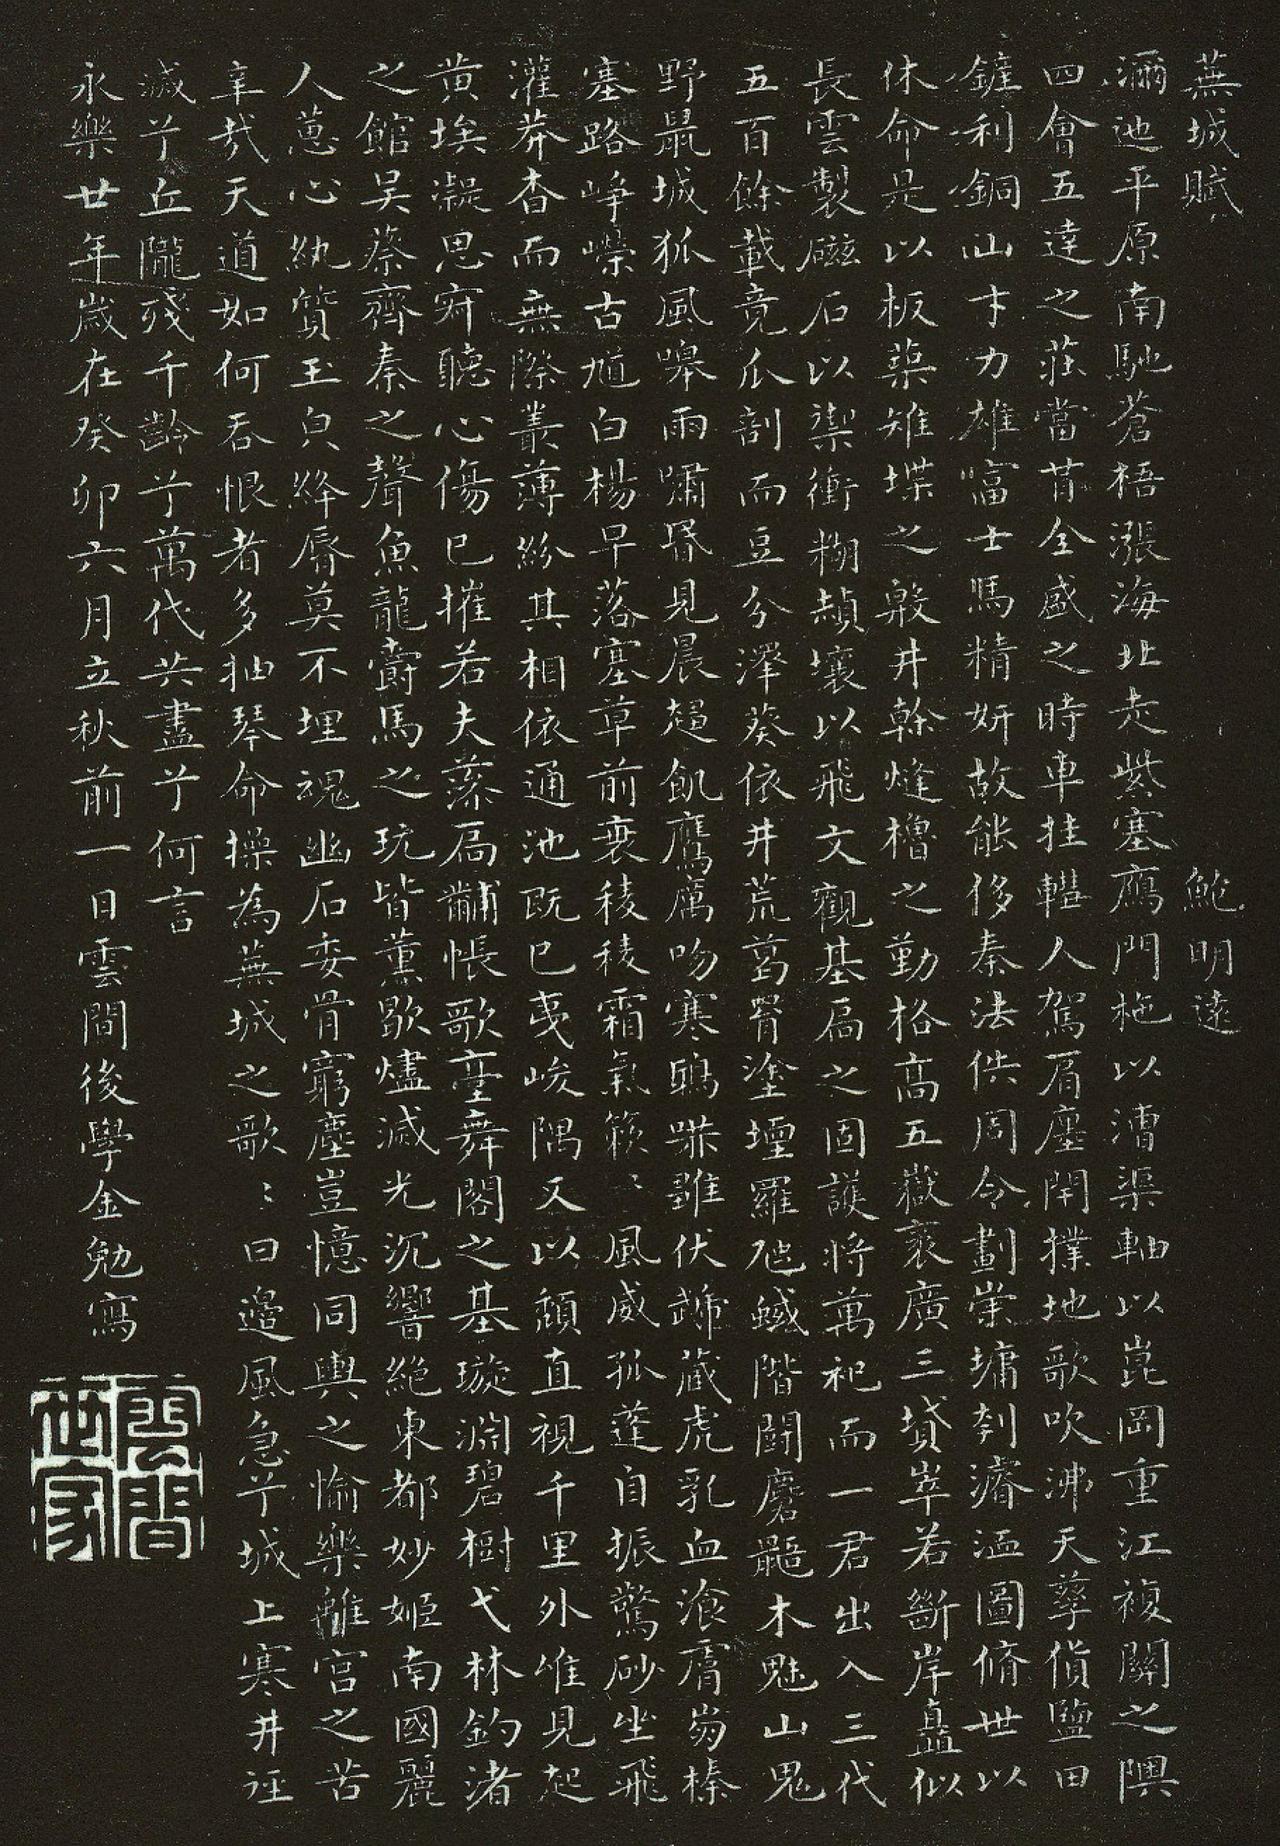 蕪城賦 鮑明遠
瀰迆平原南馳蒼梧漲海北走紫塞鴈門柂以漕渠軸以崑岡重江複關之隩
四會五達之莊當昔全盛之時車挂轊人駕肩廛閈撲地歌吹沸天孳貨鹽田
鏟利銅山才力雄富士馬精妍故能侈秦法佚周令劃崇墉刳濬洫圖脩世以
休命是以板築雉堞之殷井幹烽櫓之勤格高五嶽袤廣三墳崒若斷岸矗似
長雲製磁石以禦衝糊赬壤以飛文觀基扃之固護將萬祀而一君出入三代
五百餘載竟瓜剖而豆分澤葵依井荒葛罥塗壇羅虺蜮階鬪麏鼯木魅山鬼
野鼠城狐風嘷雨嘯昏見晨趨飢鷹厲吻寒鴟嚇雛伏虣藏虎乳血飡膚崩榛
塞路崢嶸古馗白楊早落塞草前衰稜稜霜氣簌〻風威孤蓬自振驚砂坐飛
灌莽杳而無際叢薄紛其相依通池既已夷峻隅又以頹直視千里外唯見起
黃埃凝思寂聽心傷已摧若夫藻扃黼帳歌臺舞閣之基璇淵碧樹弋林釣渚
之館吳蔡齊秦之聲魚龍爵馬之玩皆薰歇燼滅光沉響絕東都妙姬南國麗
人蕙心紈質玉貌絳脣莫不埋魂幽石委骨窮塵豈憶同輿之愉樂離宮之苦
辛哉天道如何吞恨者多抽琴命操為蕪城之歌〻曰邊風急兮城上寒井逕
滅兮丘隴殘千齡兮萬代共盡兮何言
永樂廿年歲在癸卯六月立秋前一日雲間後學金勉寫
雲間世家